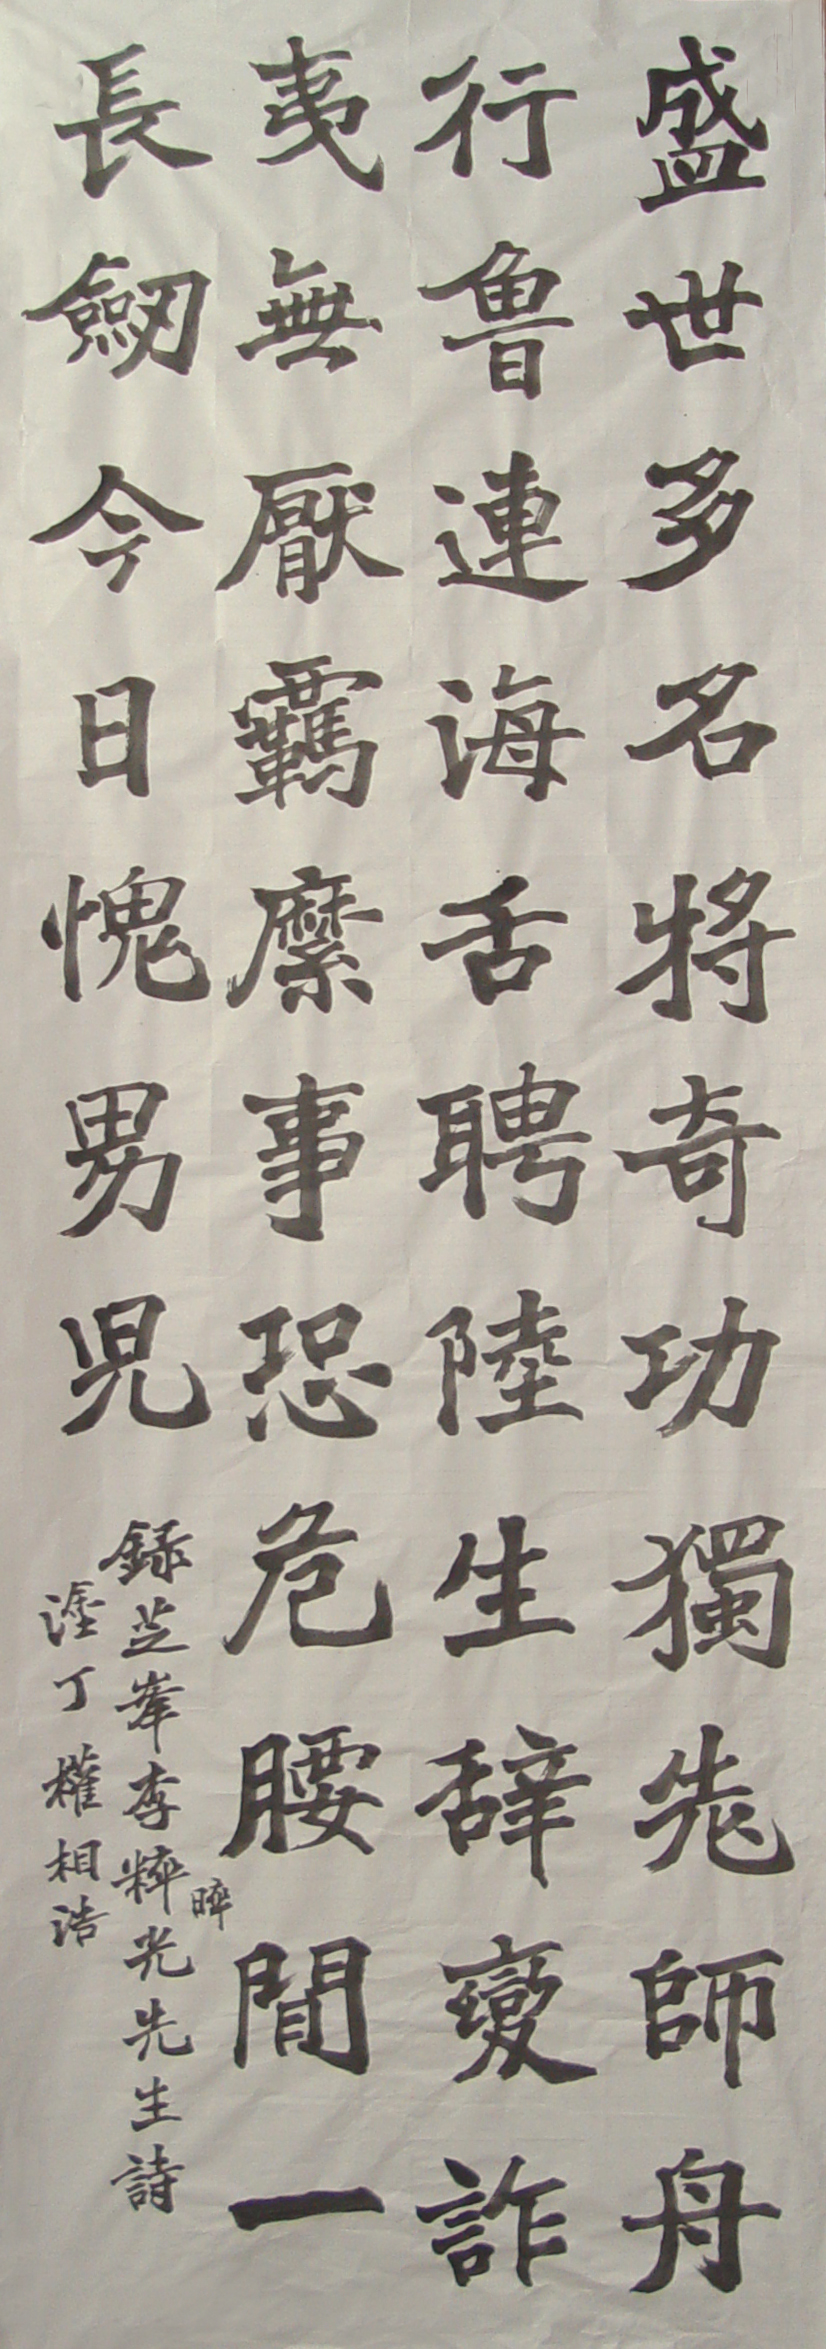 盛世多名將奇功獨先師舟
行魯連海舌聘陸生辞變詐
夷無厭羈縻事恐危腰間一
長劒今日愧男児
録芝峯李粹光先生詩
晬
塗丁權相浩